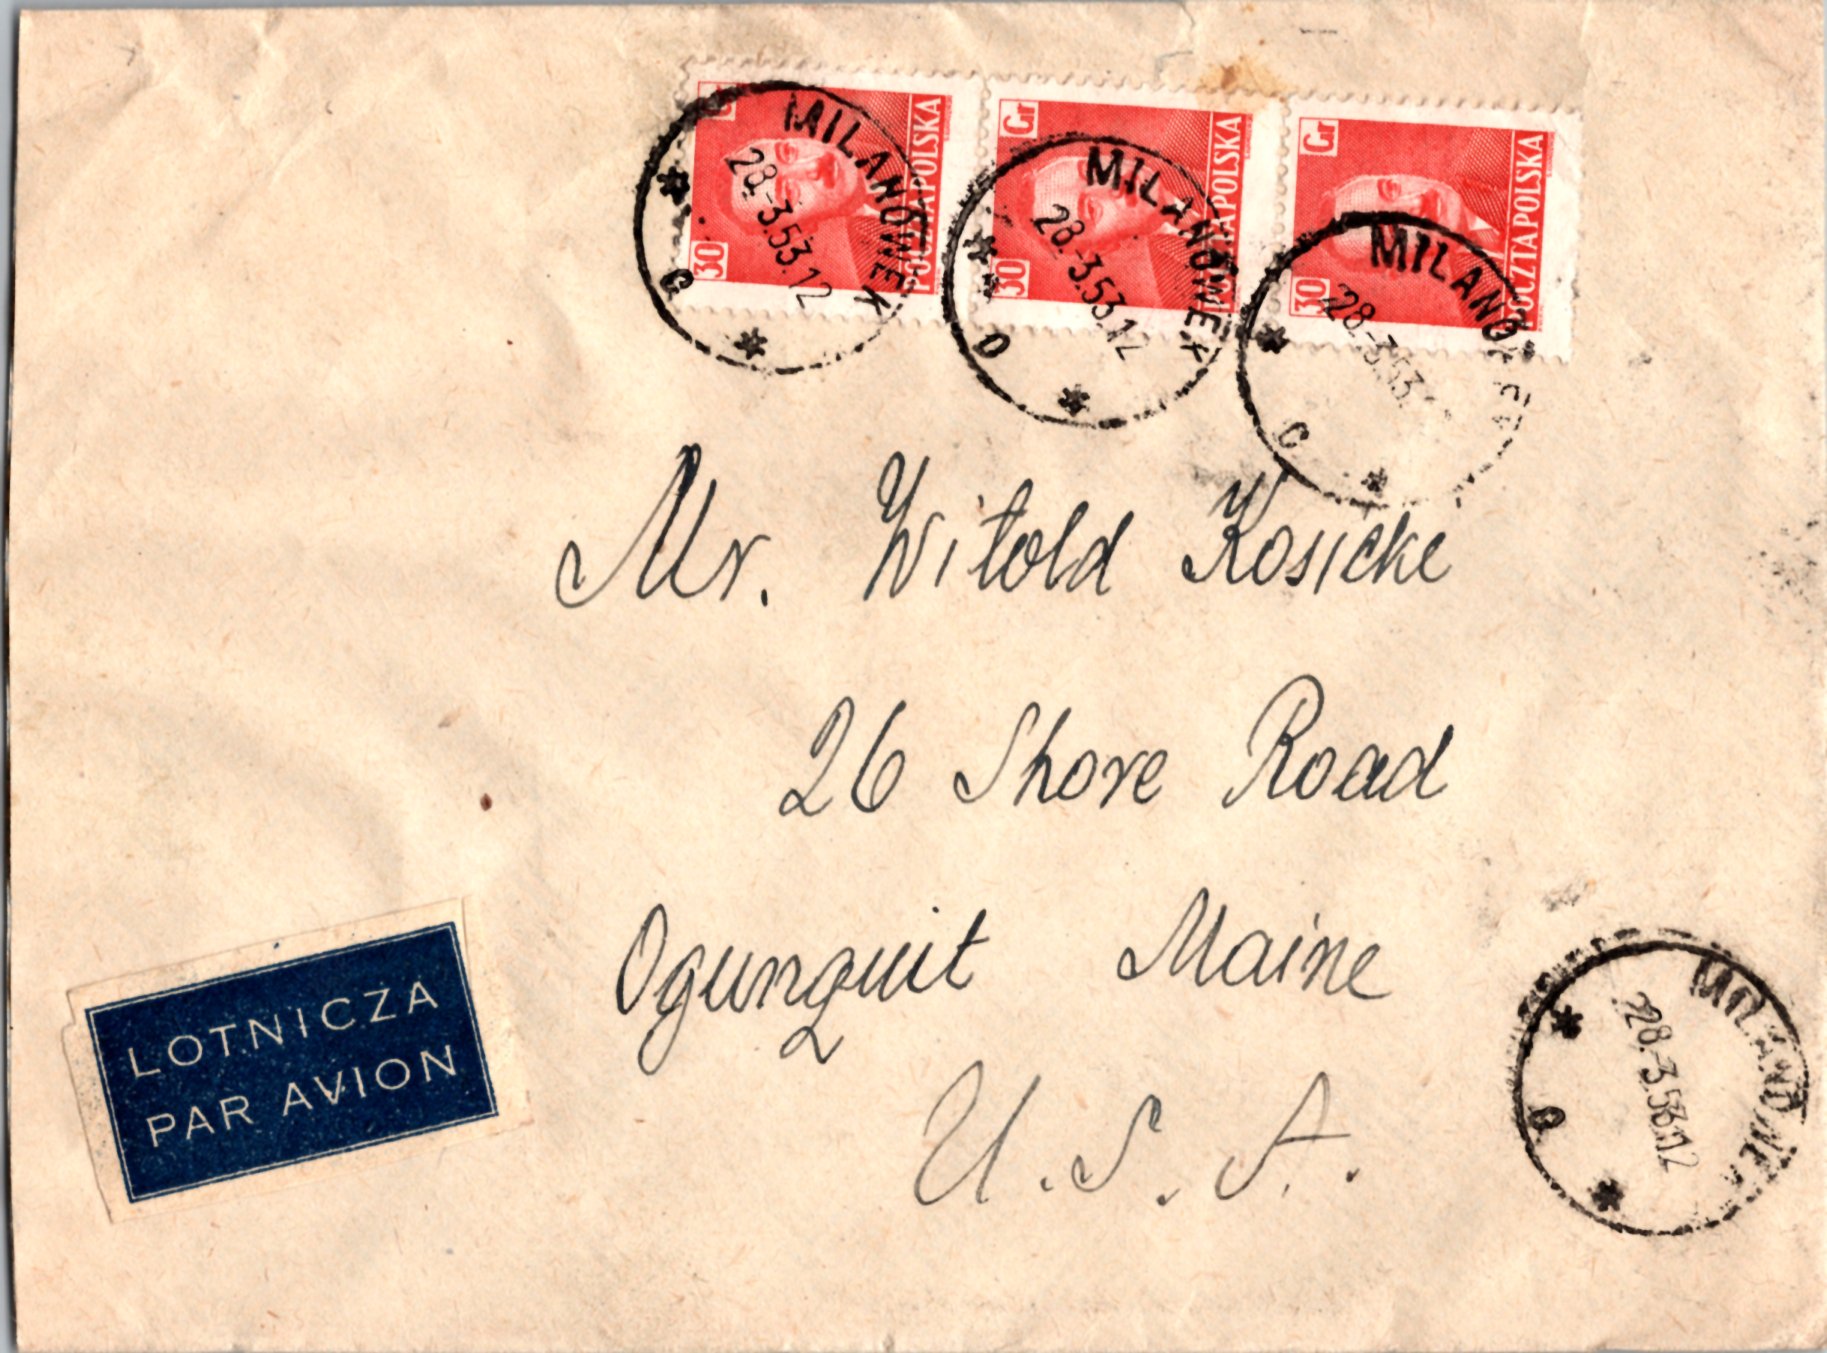 Gr
30
POCZTA POLSKA
MILANÓWEK
28.-3.53.12
C
Gr
30
POCZTA POLSKA
MILANÓWEK
28.-3.53.12
D
Gr
30
POCZTA POLSKA
MILANÓWEK
28.-3.53.
C
Mr. Witold Kosicki
26 Shore Road
Ogunquit Maine
U.S.A.
LOTNICZA
PAR AVION
MILANÓWEK
28.-3.53.12